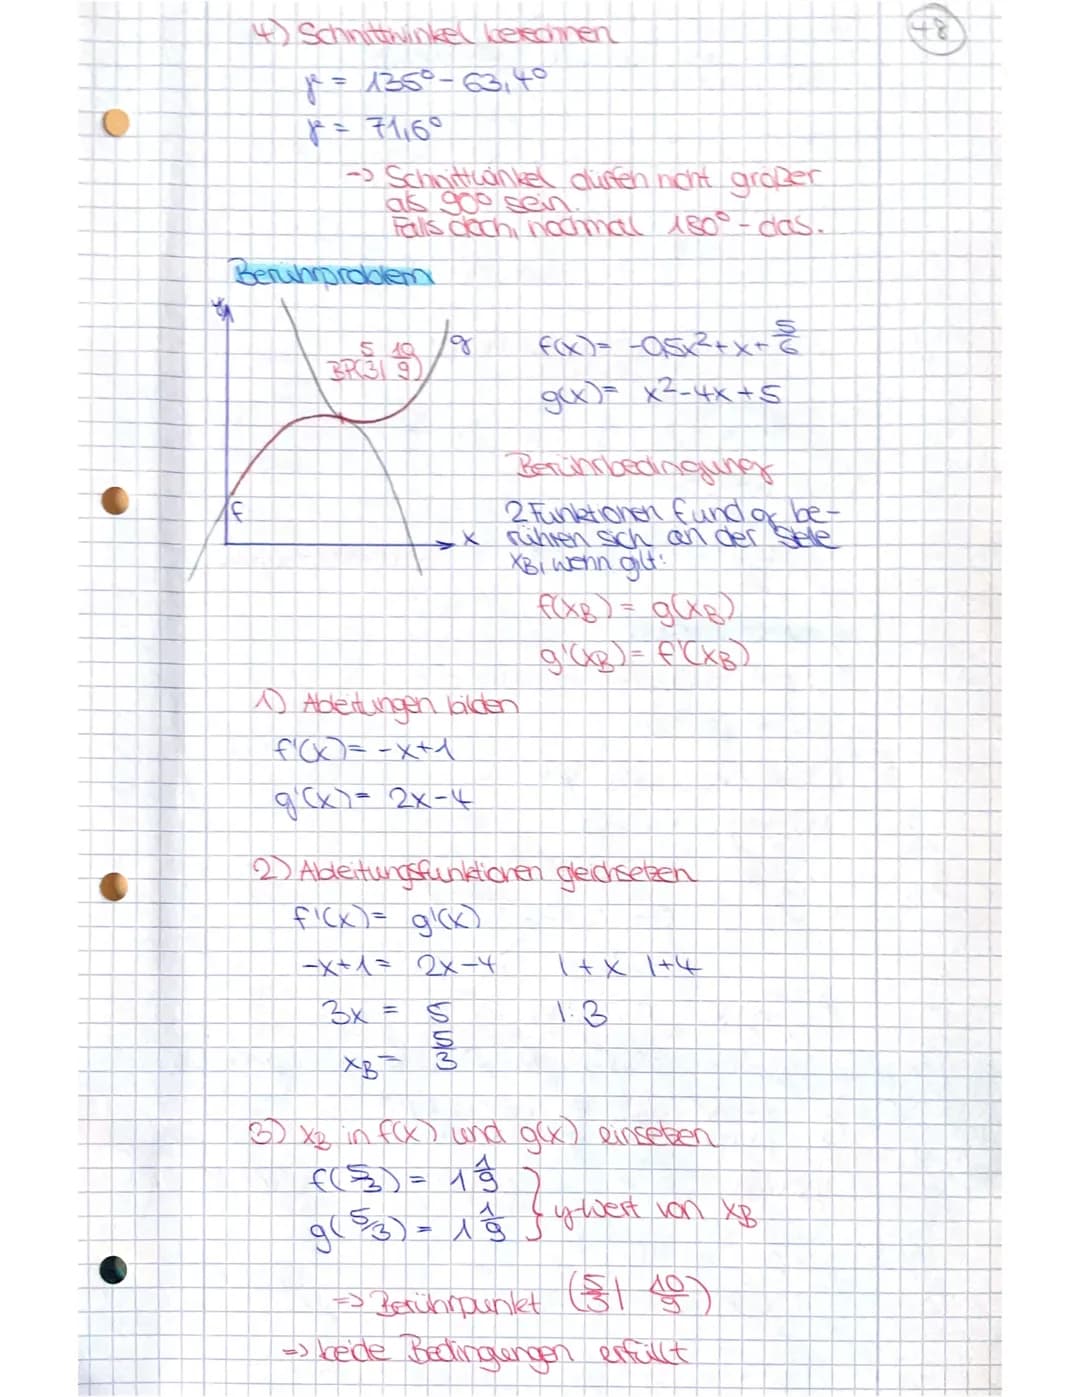 48
4) Schnittwinkel berechnen
γ = 135° - 63,4°
γ = 71,6°
-> Schnittwinkel dürfen nicht größer
als 90° sein.
Falls doch, nochmal 180° - das.
Berührproblem
y
g
BP(5/3 | 10/9)
f
x
f(x) = -0,5x² + x + 5/6
g(x) = x² - 4x + 5
Berührbedingung
2 Funktionen f und g be-
rühren sich an der Stelle
xB, wenn gilt:
f(xB) = g(xB)
g'(xB) = f'(xB)
1) Ableitungen bilden
f'(x) = -x+1
g'(x) = 2x-4
2) Ableitungsfunktionen gleichsetzen
f'(x) = g'(x)
-x+1 = 2x-4 |+x |+4
3x = 5 |:3
xB = 5/3
3) xB in f(x) und g(x) einsetzen
f(5/3) = 1 1/9
g(5/3) = 1 1/9 } y-Wert von xB
=> Berührpunkt (5/3 | 10/9)
=> beide Bedingungen erfüllt